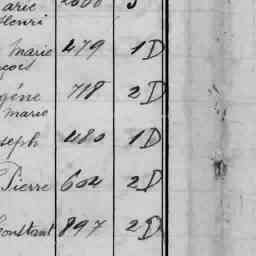 arie
Henri
Marie 479 1D
çois
gène 718 2D
Marie
seph 480 1D
Pierre 604 2D
Constant 897 2D